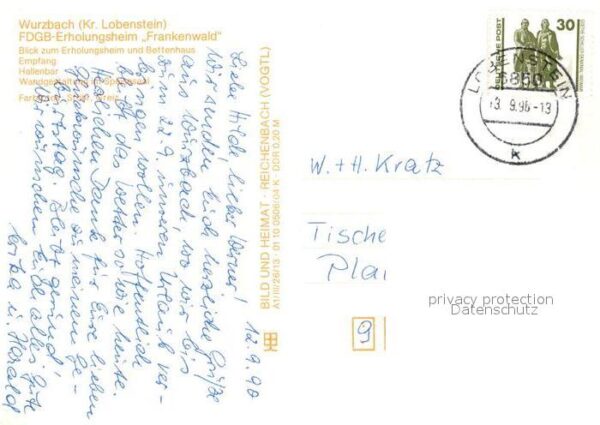 Wurzbach (Kr. Lobenstein)
FDGB-Erholungsheim „Frankenwald"
Blick zum Erholungsheim und Bettenhaus
Empfang
Hallenbar
Wandgestaltung im
12.9.90
Liebe Hilde, lieber Werner!
Wir senden Euch herzliche Grüße
aus Wurzbach, wo wir bis
zum 22.9. unseren Urlaub ver-
bringen wollen. Hoffentlich
bleibt das Wetter so wie heute.
Herzlichen Dank für Eure lieben
Glückwünsche zu meinem Ge-
burtstag. Bleibt gesund,
wir wünschen Euch alles Gute
u. Harald
BILD UND HEIMAT · REICHENBACH (VOGTL)
A1/III/26/13 · 01 10 0506/04 K · DDR 0,20 M
30
DEUTSCHE POST
LOBENSTEIN
6850
13.9.90-13
k
W. + H. Kratz
Tische
Plai
9
privacy protection
Datenschutz